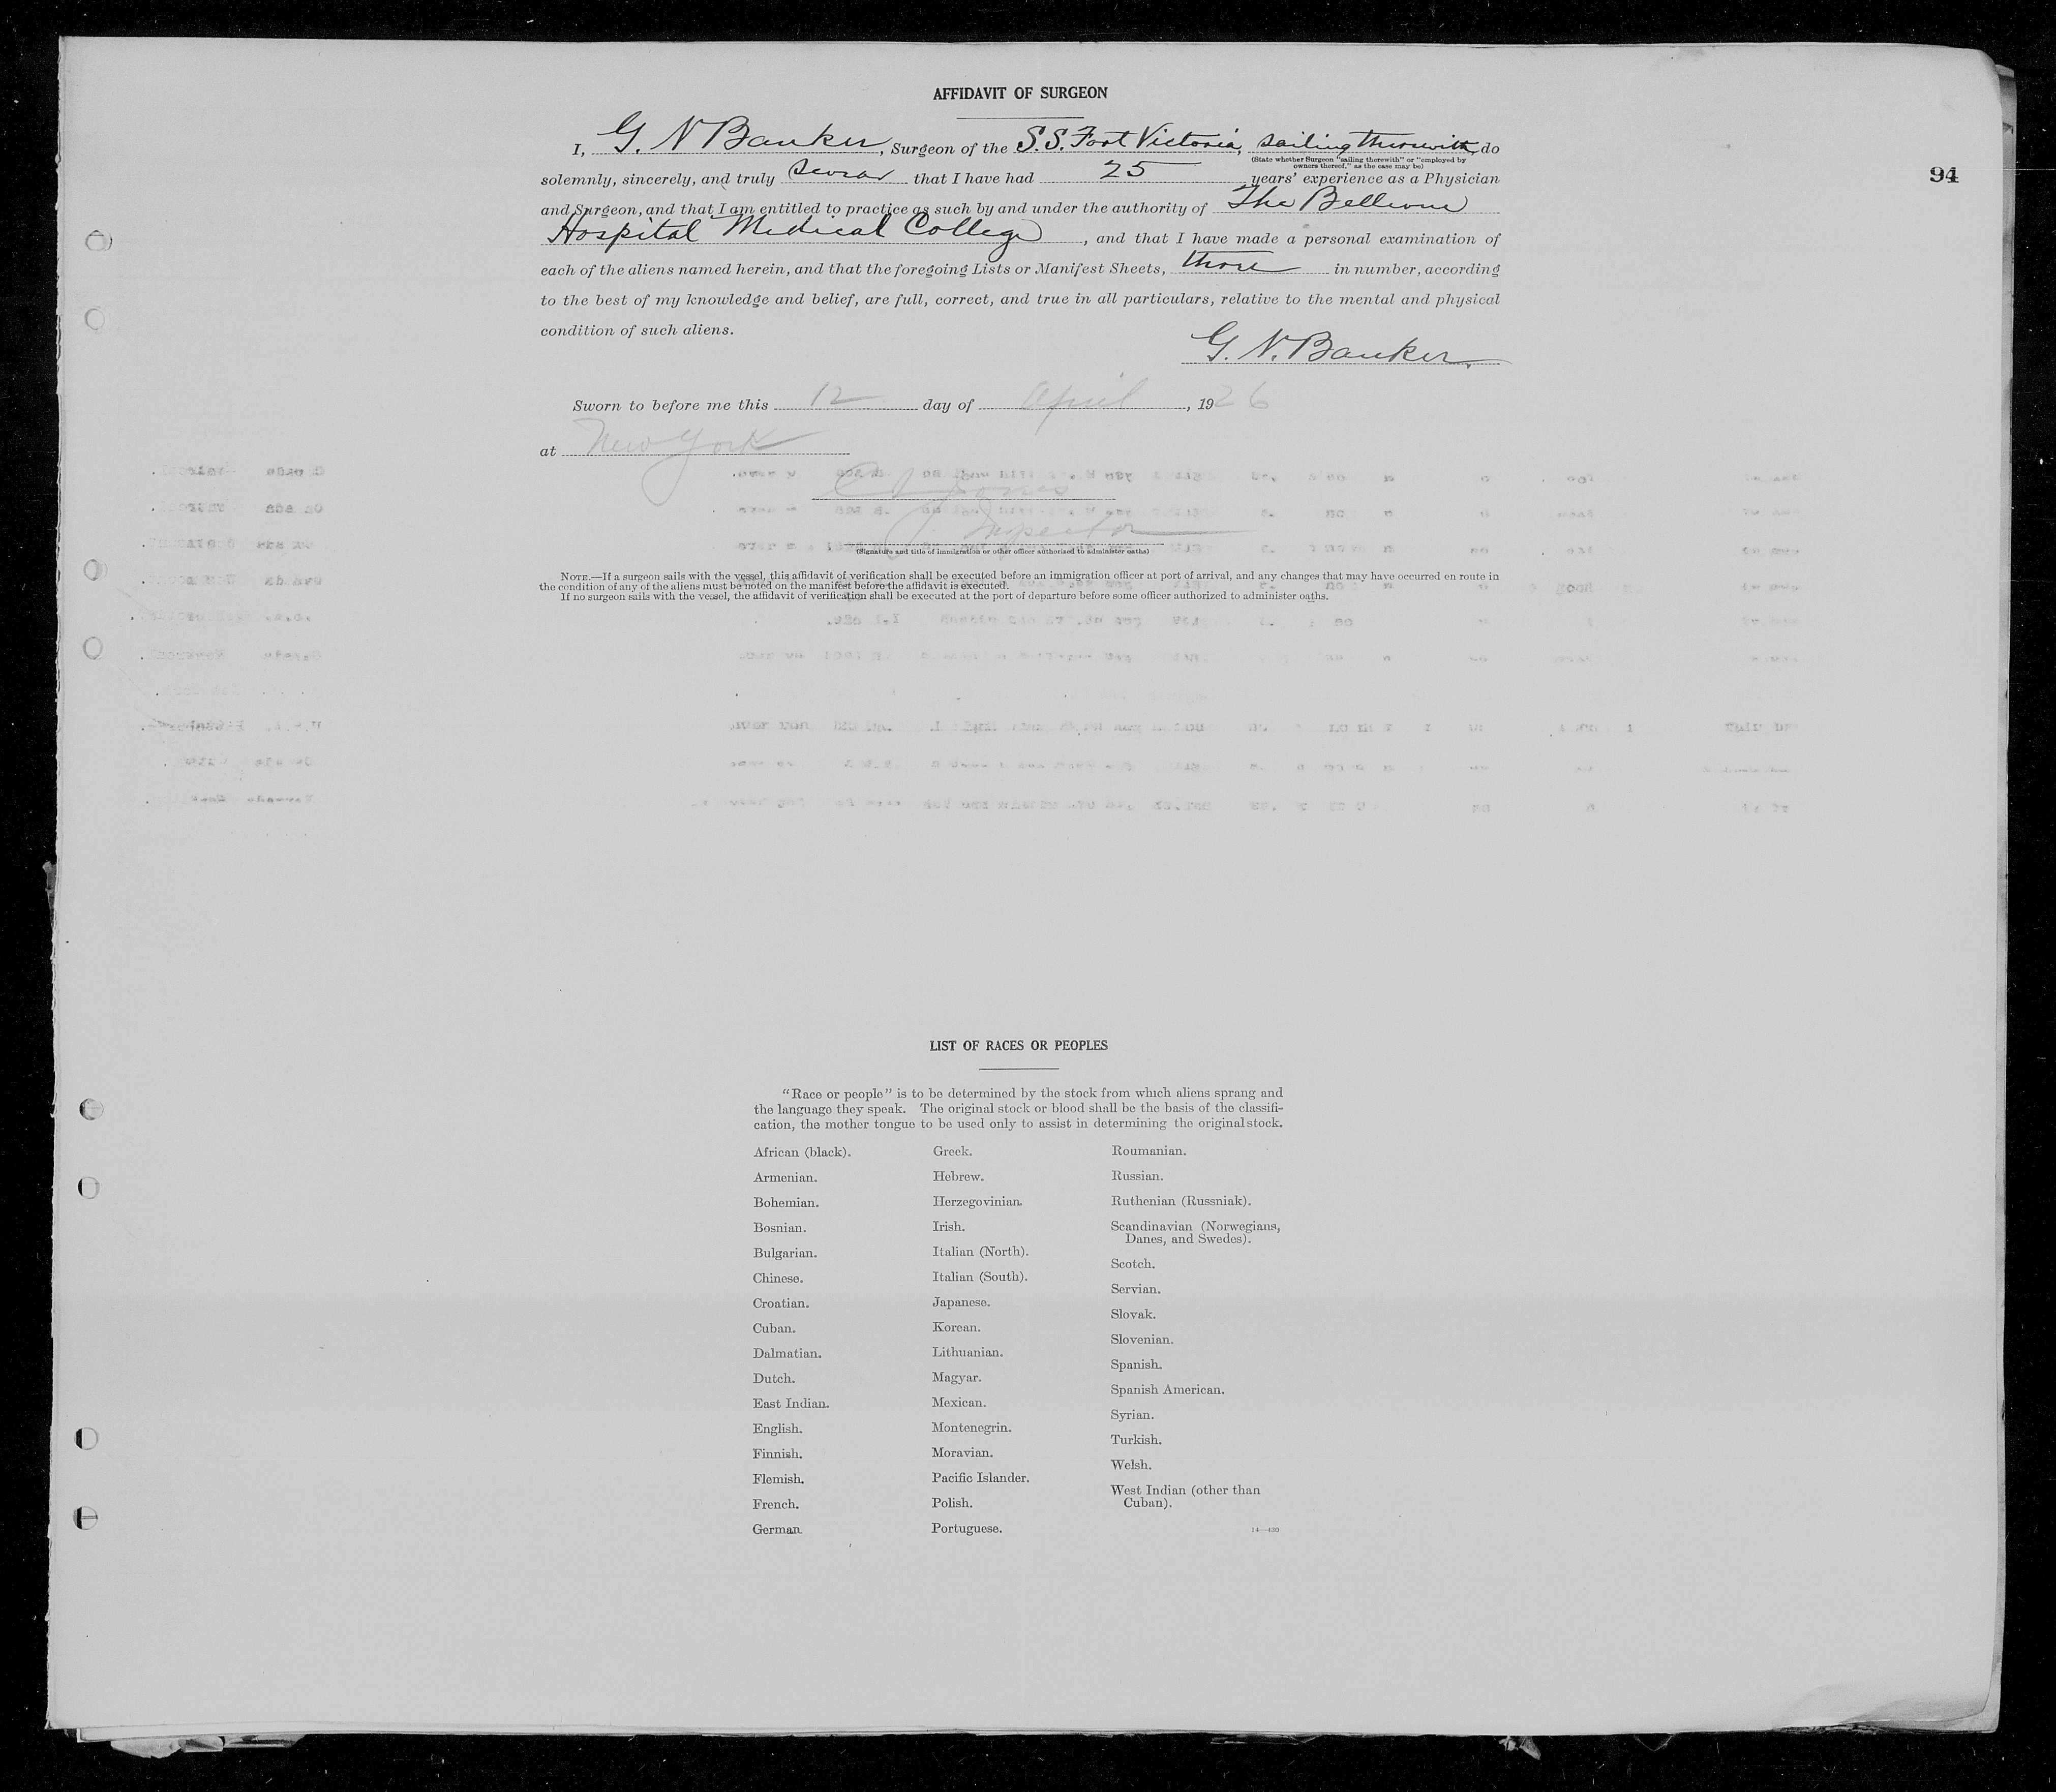 AFFIDAVIT OF SURGEON
I, G. N Banker, Surgeon of the S.S. Fort Victoria, sailing therewith, do
(State whether Surgeon "sailing therewith" or "employed by
owners thereof," as the case may be)
94
solemnly, sincerely, and truly swear that I have had 25 years' experience as a Physician
and Surgeon, and that I am entitled to practice as such by and under the authority of The Bellevue
Hospital Medical College, and that I have made a personal examination of
each of the aliens named herein, and that the foregoing Lists or Manifest Sheets, three in number, according
to the best of my knowledge and belief, are full, correct, and true in all particulars, relative to the mental and physical
condition of such aliens.
G. N. Banker
Sworn to before me this 12 day of April, 1926
at New York
Jones
Inspector
(Signature and title of immigration or other officer authorized to administer oaths)
NOTE.—If a surgeon sails with the vessel, this affidavit of verification shall be executed before an immigration officer at port of arrival, and any changes that may have occurred en route in
the condition of any of the aliens must be noted on the manifest before the affidavit is executed.
If no surgeon sails with the vessel, the affidavit of verification shall be executed at the port of departure before some officer authorized to administer oaths.
LIST OF RACES OR PEOPLES
"Race or people" is to be determined by the stock from which aliens sprang and
the language they speak. The original stock or blood shall be the basis of the classifi-
cation, the mother tongue to be used only to assist in determining the original stock.
African (black).
Armenian.
Bohemian.
Bosnian.
Bulgarian.
Chinese.
Croatian.
Cuban.
Dalmatian.
Dutch.
East Indian.
English.
Finnish.
Flemish.
French.
German
Greek.
Hebrew.
Herzegovinian.
Irish.
Italian (North).
Italian (South).
Japanese.
Korean.
Lithuanian.
Magyar.
Mexican.
Montenegrin.
Moravian.
Pacific Islander.
Polish.
Portuguese.
Roumanian.
Russian.
Ruthenian (Russniak).
Scandinavian (Norwegians,
Danes, and Swedes).
Scotch.
Servian.
Slovak.
Slovenian.
Spanish.
Spanish American.
Syrian.
Turkish.
Welsh.
West Indian (other than
Cuban).
14—430